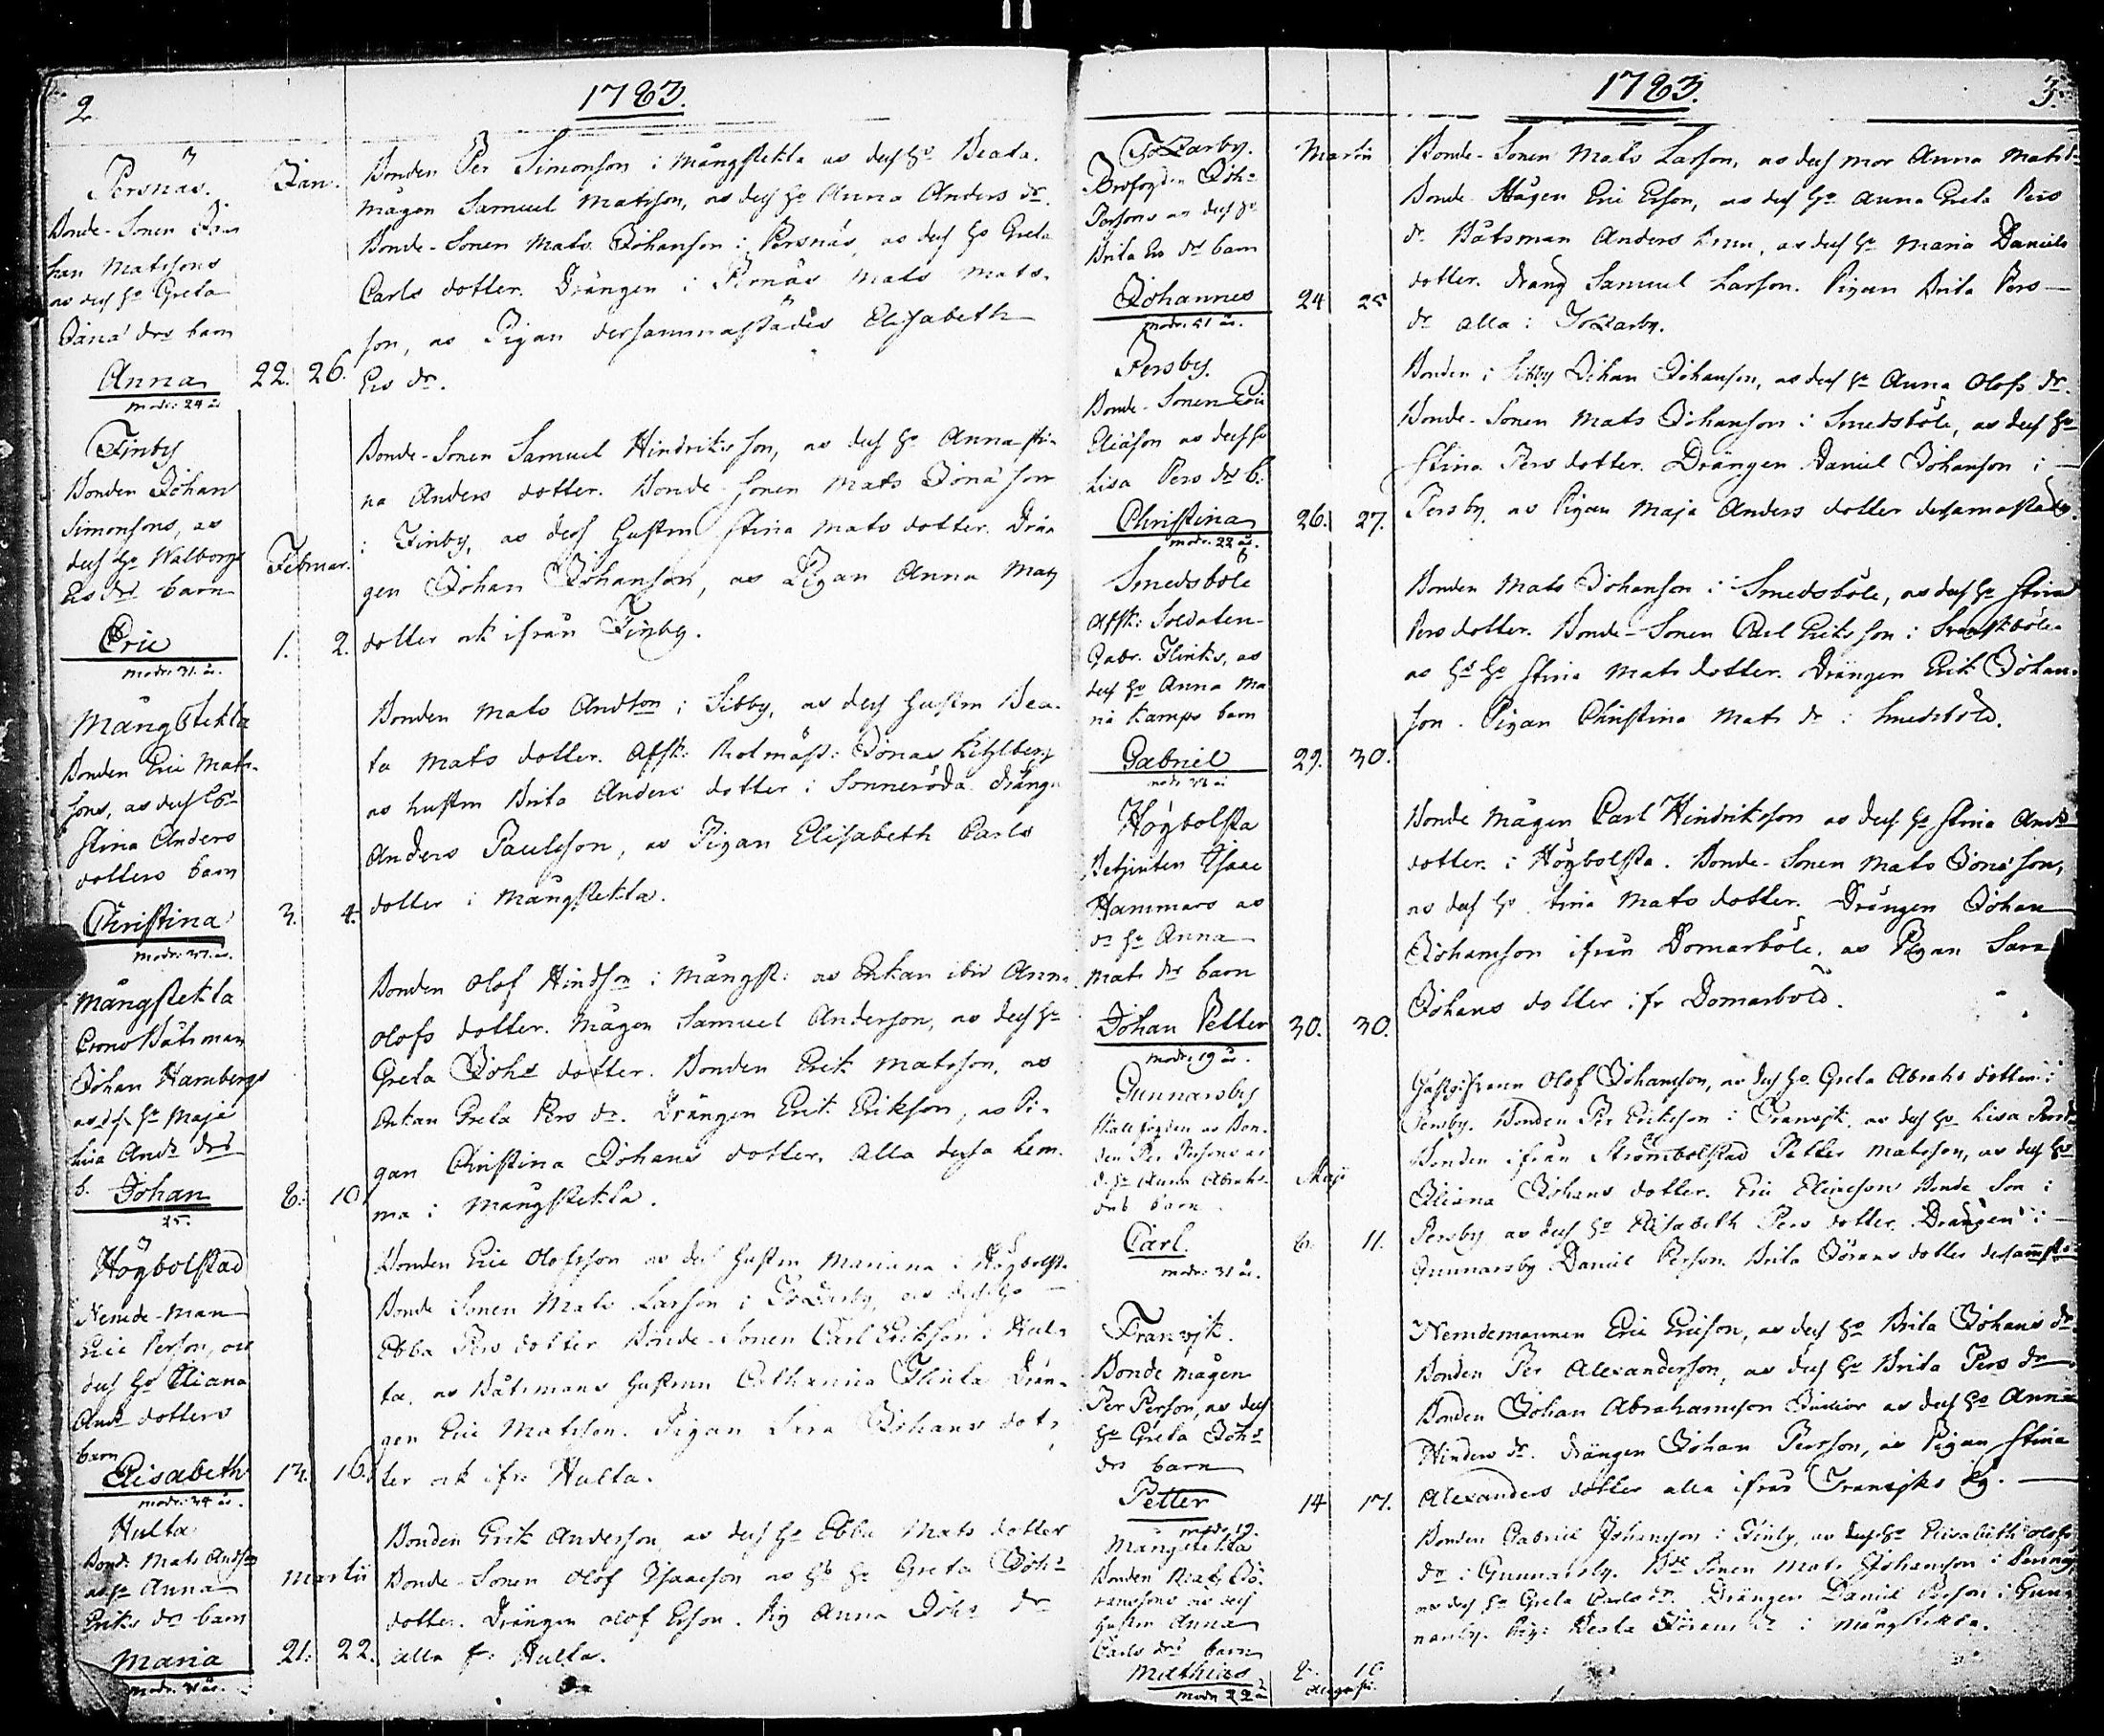 2.
1783.
Persnäs.
Jan.
Bonde-Sonen Jo-
han Matssons
as dess ho Greta
Jöna drs barn
Anna
22. 26.
modr: 24 år
Bonden Per Simonson i Mångstekta as dess ho Beata.
mågen Samuel Matsson, as dess ho Anna Anders dr.
Bonde-Sonen Mats Johanson i Persnäs, as dess ho Greta
Carls dotter. Drängen i Persnäs Mats Mats-
son, as Pigan dersammastädes Elisabeth
Ers dr.
Finby
Bonden Johan
Simonsons, as
dess ho Walborgs
Ers drs barn
Februar.
Eric
1. 2.
modr: 31. år.
Bonde-Sonen Samuel Hindriksson, as dess ho Anna Sti-
na Anders dotter. Bonde-Sonen Mats Jönasson
i Finby, as dess Hustru Stina Mats dotter. Drän
gen Johan Johanson, as Pigan Anna Mats
dotter ock ifrån Finby.
Mångstekta
Bonden Eric Mats-
sons, as dess ho
Stina Anders
dotters barn
Christina
3. 4.
modr: 37. år.
Bonden Mats Andson i Sibby, as dess hustru Bea-
ta Mats dotter. Affsk: Rotmäst: Jonas Kihlberg
as hustru Brita Anders dotter i Sonneröda Dräng:
Anders Paulsson, as Pigan Elisabeth Carls
dotter i Mångstekta.
Mångstekta
Crono Båtsman
Johan Hambergs
as ds ho Maja
Lisa Ands drs
b. Johan
8. 10.
25.
Bonden Olof Hindson i Mångst: as Enkan ibid Anna
Olofs dotter. Mågen Samuel Anderson, as dess ho
Greta Johs dotter. Bonden Erik Matsson, as
Enkan Greta Pers dr. Drängen Erik Erikson, as Pi-
gan Christina Johans dotter. Alla dessa hem-
ma i Mångstekta.
Högbolstad
Nemde-Man
Eric Person, as
dess ho Eliana
Ands dotters
barn
Elisabeth
13. 16.
modr: 34 år.
Bonden Eric Olofsson as dess Hustru Mariana i Högbolst.
Bonde Sonen Mats Larson i Jollarby, as dess ho
Ebba Pers dotter Bonde-Sonen Carl Erikson i Hul-
ta, as Båtsmans Hustrun Catharina Flinta Drän-
gen Eric Matsson. Pigan Sara Johans dot-
ter ock ifr: Hulta.
Hulta
Bond: Mats Andson
as ho Anna
Eriks drs barn
Martii
Maria
21. 22.
modr: 31 år.
Bonden Erik Anderson, as dess ho Ebba Mats dotter
Bonde-Sonen Olof Isaacson as hs ho Greta Johs
dotter. Drängen Olof Erson. Pig Anna Johs dr
alla fr: Hulta.
1783.
3.
Jollarby.
Brofogden Joh:
Persons as dess ho
Brita Ers drs barn
Martii
Johannes
24 25
modr: 41 år.
Bonde-Sonen Mats Larson, as dess mor Anna Matsd-
Bonde-Mågen Eric Erson, as dess ho Anna Greta Pers
dr. Båtsman Anders Krun, as dess ho Maria Daniels
dotter. Dräng Samuel Larson. Pigan Brita Pers
dr alla i Jollarby.
Persby.
Bonde-Sonen Eric
Eliäson as dess ho
Lisa Pers drs b.
Christina
26. 27.
modr. 22 år.
Bonden i Sibby Johan Johanson, as dess ho Anna Olofs dr.
Bonde-Sonen Mats Johanson i Smedsböle, as dess ho
Stina Pers dotter. Drängen Daniel Johanson i
Persby, as Pigan Maja Anders dotter dersamastädes.
Smedsböle
Affsk: Soldaten
Gabr. Flinks, as
dess ho Anna Ma
ria Kamps barn
Gabriel
29. 30.
Bonden Mats Johanson i Smedsböle, as dess ho Stina
Pers dotter. Bonde-Sonen Carl Eriksson i Svartsböle
as hs ho Stina Mats dotter. Drängen Erik Johan-
son. Pigan Christina Mats dr i Smedsböle.
Högbolsta
Betjenten Isaac
Hammars as
ds ho Anna
Mats drs barn
Johan Petter
30. 30.
modr. 19 år.
Bonde Mågen Carl Hindriksson as dess ho Stina Ands
dotter i Högbolsta. Bonde-Sonen Mats Jönasson,
as dess ho Stina Mats dotter. Drängen Johan
Johanson ifrån Domarböle, as Pigan Sara
Johans dotter ifr Domarböle.
Gunnarsby
den Per Persons as
ds ho Anna Abrahs
drs barn
Maji
Carl
6. 11.
modr: 31 år.
Gästgifvaren Olof Johanson, as dess ho Greta Abrahs dotter i
Persby. Bonden Per Erikson i Fransjk. as dess ho Lisa Persd.
Bonden ifrån Strömbolstad Petter Matsson, as dess ho
Eliana Johans dotter. Eric Eliaeson Bonde Son i
Persby as dess ho Elisabeth Pers dotter. Drängen i
Gunnarsby Daniel Person. Brita Görans dotter dersammst:
Fransjk.
Bonde mågen
Per Person, as dess
ho Greta Johs
drs barn
Petter
14 17.
modr. 19.
Nemdemannen Eric Ericson, as dess ho Brita Johans dr
Bonden Per Alexanderson, as dess ho Brita Pers dr
Bonden Johan Abrahamson Junior as dess ho Anna
Hinders dr. Drängen Johan Person, as Pigan Stina
Alexanders dotter alla ifrån Fransjks by.
Mångstekta
Bonden Mats Gö-
ranssons as dess
hustru Anna
Carls drs barn
Mathias
8. 10
Augusti.
modr 22 år
Bonden Gabriel Johanson i Finby, as dess ho Elisabeth Olofs
dr i Gunnarsby. Bde Sonen Mats Johanson i Persnäs,
as dess ho Greta Carls dr. Drängen Daniel Person i Gun-
narsby. Pig: Beata Görans dr i Mångstekta.